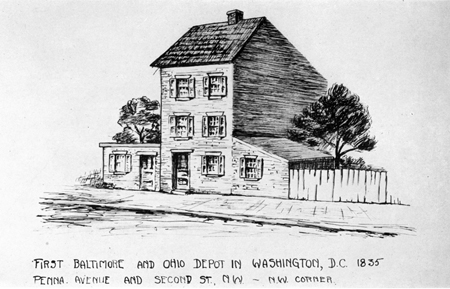 FIRST BALTIMORE AND OHIO DEPOT IN WASHINGTON, D.C. 1835
PENNA. AVENUE AND SECOND ST., N.W. - N.W. CORNER.